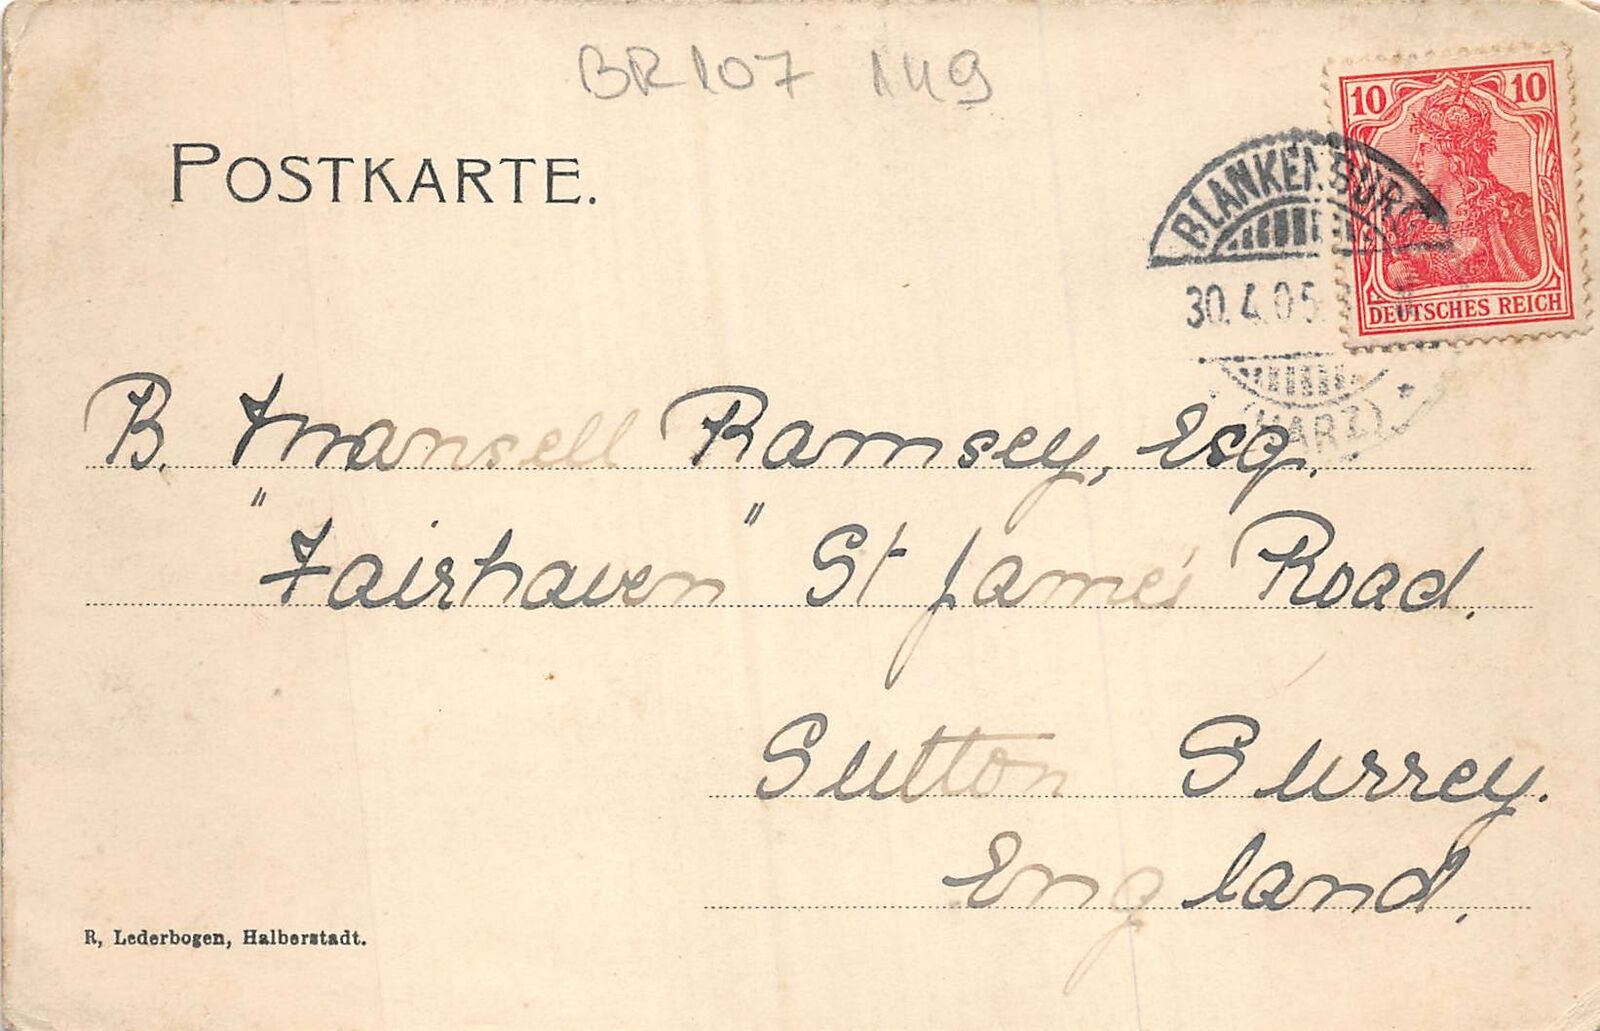 BR 107 149
POSTKARTE.
10 10
DEUTSCHES REICH
BLANKENBURG
30.4.05.
(HARZ)
B. Mansell Ramsey, Esq.
"Fairhaven" St James's Road.
Sutton Surrey.
England.
R, Lederbogen, Halberstadt.